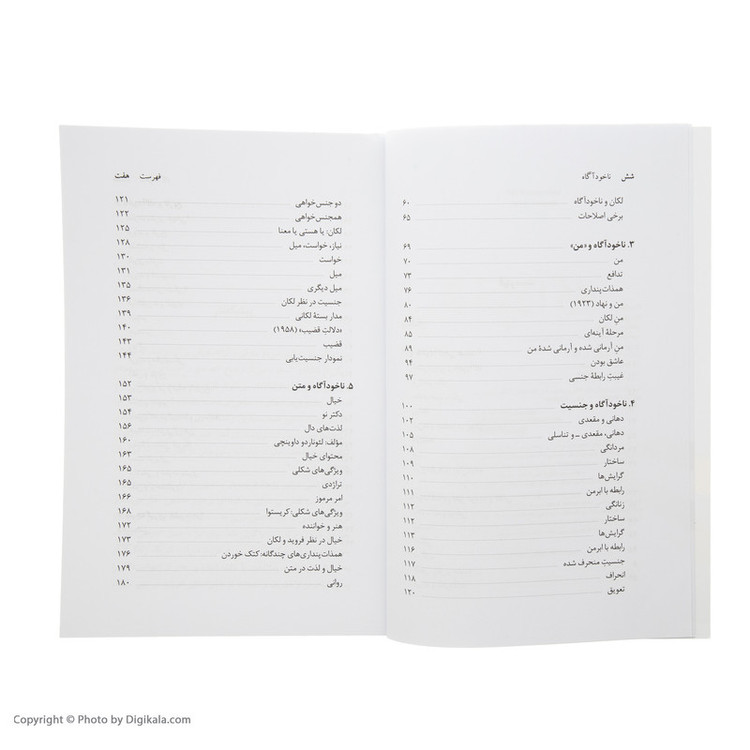 شش ناخودآگاه
لکان و ناخودآگاه ۶۰
برخی اصلاحات ۶۵
۳. ناخودآگاه و «من» ۶۹
من ۷۰
تدافع ۷۳
همذات‌پنداری ۷۶
من و نهاد (۱۹۲۳) ۸۰
منِ لکان ۸۴
مرحلهٔ آینه‌ای ۸۵
منِ آرمانی شده و آرمانی شدهٔ من ۸۹
عاشق بودن ۹۴
غیبتِ رابطهٔ جنسی ۹۷
۴. ناخودآگاه و جنسیت ۱۰۰
دهانی و مقعدی ۱۰۲
دهانی، مقعدی ـ و تناسلی ۱۰۵
مردانگی ۱۰۸
ساختار ۱۰۹
گرایش‌ها ۱۱۰
رابطه با ابرمن ۱۱۱
زنانگی ۱۱۲
ساختار ۱۱۲
گرایش‌ها ۱۱۳
رابطه با ابرمن ۱۱۶
جنسیتِ منحرف شده ۱۱۷
انحراف ۱۱۸
تعویق ۱۲۰
فهرست هفت
دو جنس‌خواهی ۱۲۱
همجنس‌خواهی ۱۲۲
لکان: یا هستی یا معنا ۱۲۵
نیاز، خواست، میل ۱۲۸
خواست ۱۳۰
میل ۱۳۱
میل دیگری ۱۳۵
جنسیت در نظر لکان ۱۳۶
مدار بستهٔ لکانی ۱۳۹
«دلالتِ قضیب» (۱۹۵۸) ۱۴۰
قضیب ۱۴۳
نمودار جنسیت‌یابی ۱۴۴
۵. ناخودآگاه و متن ۱۵۲
خیال ۱۵۳
دکتر نو ۱۵۴
لذت‌های دال ۱۵۶
مؤلف: لئوناردو داوینچی ۱۶۰
محتوای خیال ۱۶۳
ویژگی‌های شکلی ۱۶۵
تراژدی ۱۶۵
امر مرموز ۱۶۶
ویژگی‌های شکلی: کریستوا ۱۶۸
هنر و خواننده ۱۷۲
خیال در نظر فروید و لکان ۱۷۳
همذات‌پنداری‌های چندگانه: کتک خوردن ۱۷۶
خیال و لذت در متن ۱۷۹
روانی ۱۸۰
Copyright © Photo by Digikala.com